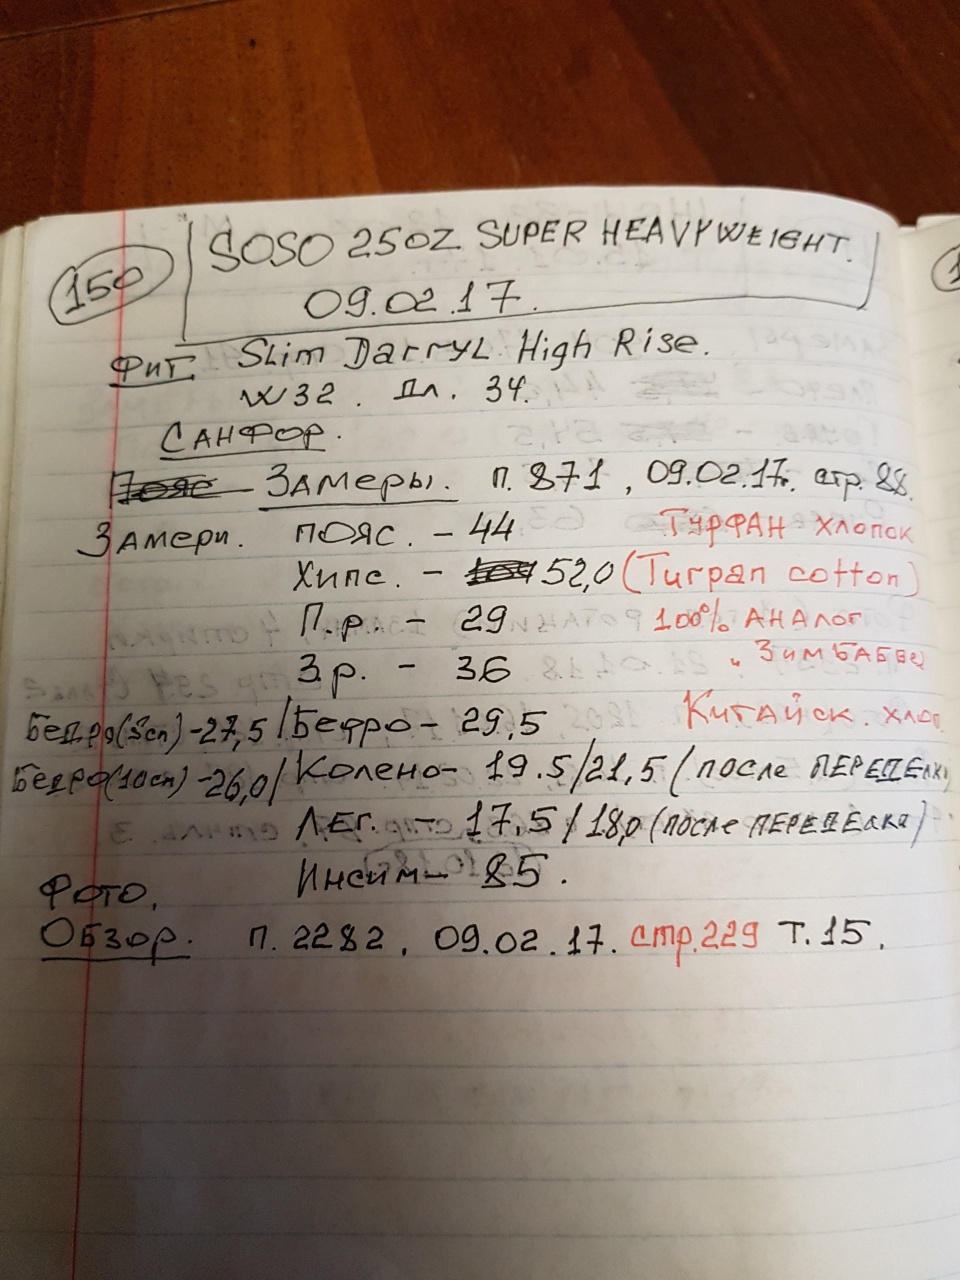 150
SOSO 25OZ SUPER HEAVYWEIGHT.
09.02.17.
Фит. Slim Darryl High Rise.
W32. Дл. 34.
Санфор.
Замеры. п. 871, 09.02.17г. стр. 88.
Замери. Пояс. - 44 Турфан хлопок
Хипс. - 52,0 (Turpan cotton)
П.р. - 29 100% Аналог
З.р. - 36 " Зимбабве
Бедро(5сп) - 27,5 / Бедро - 29,5 Китайск. хлоп
Бедро(10сп) - 26,0 / Колено - 19.5/21,5 (после ПЕРЕДЕлки
Лег. - 17,5/18,0 (после ПЕРЕДЕлки)
Инсим - 85.
Фото.
Обзор. п. 2282, 09.02.17. стр.229 Т.15.